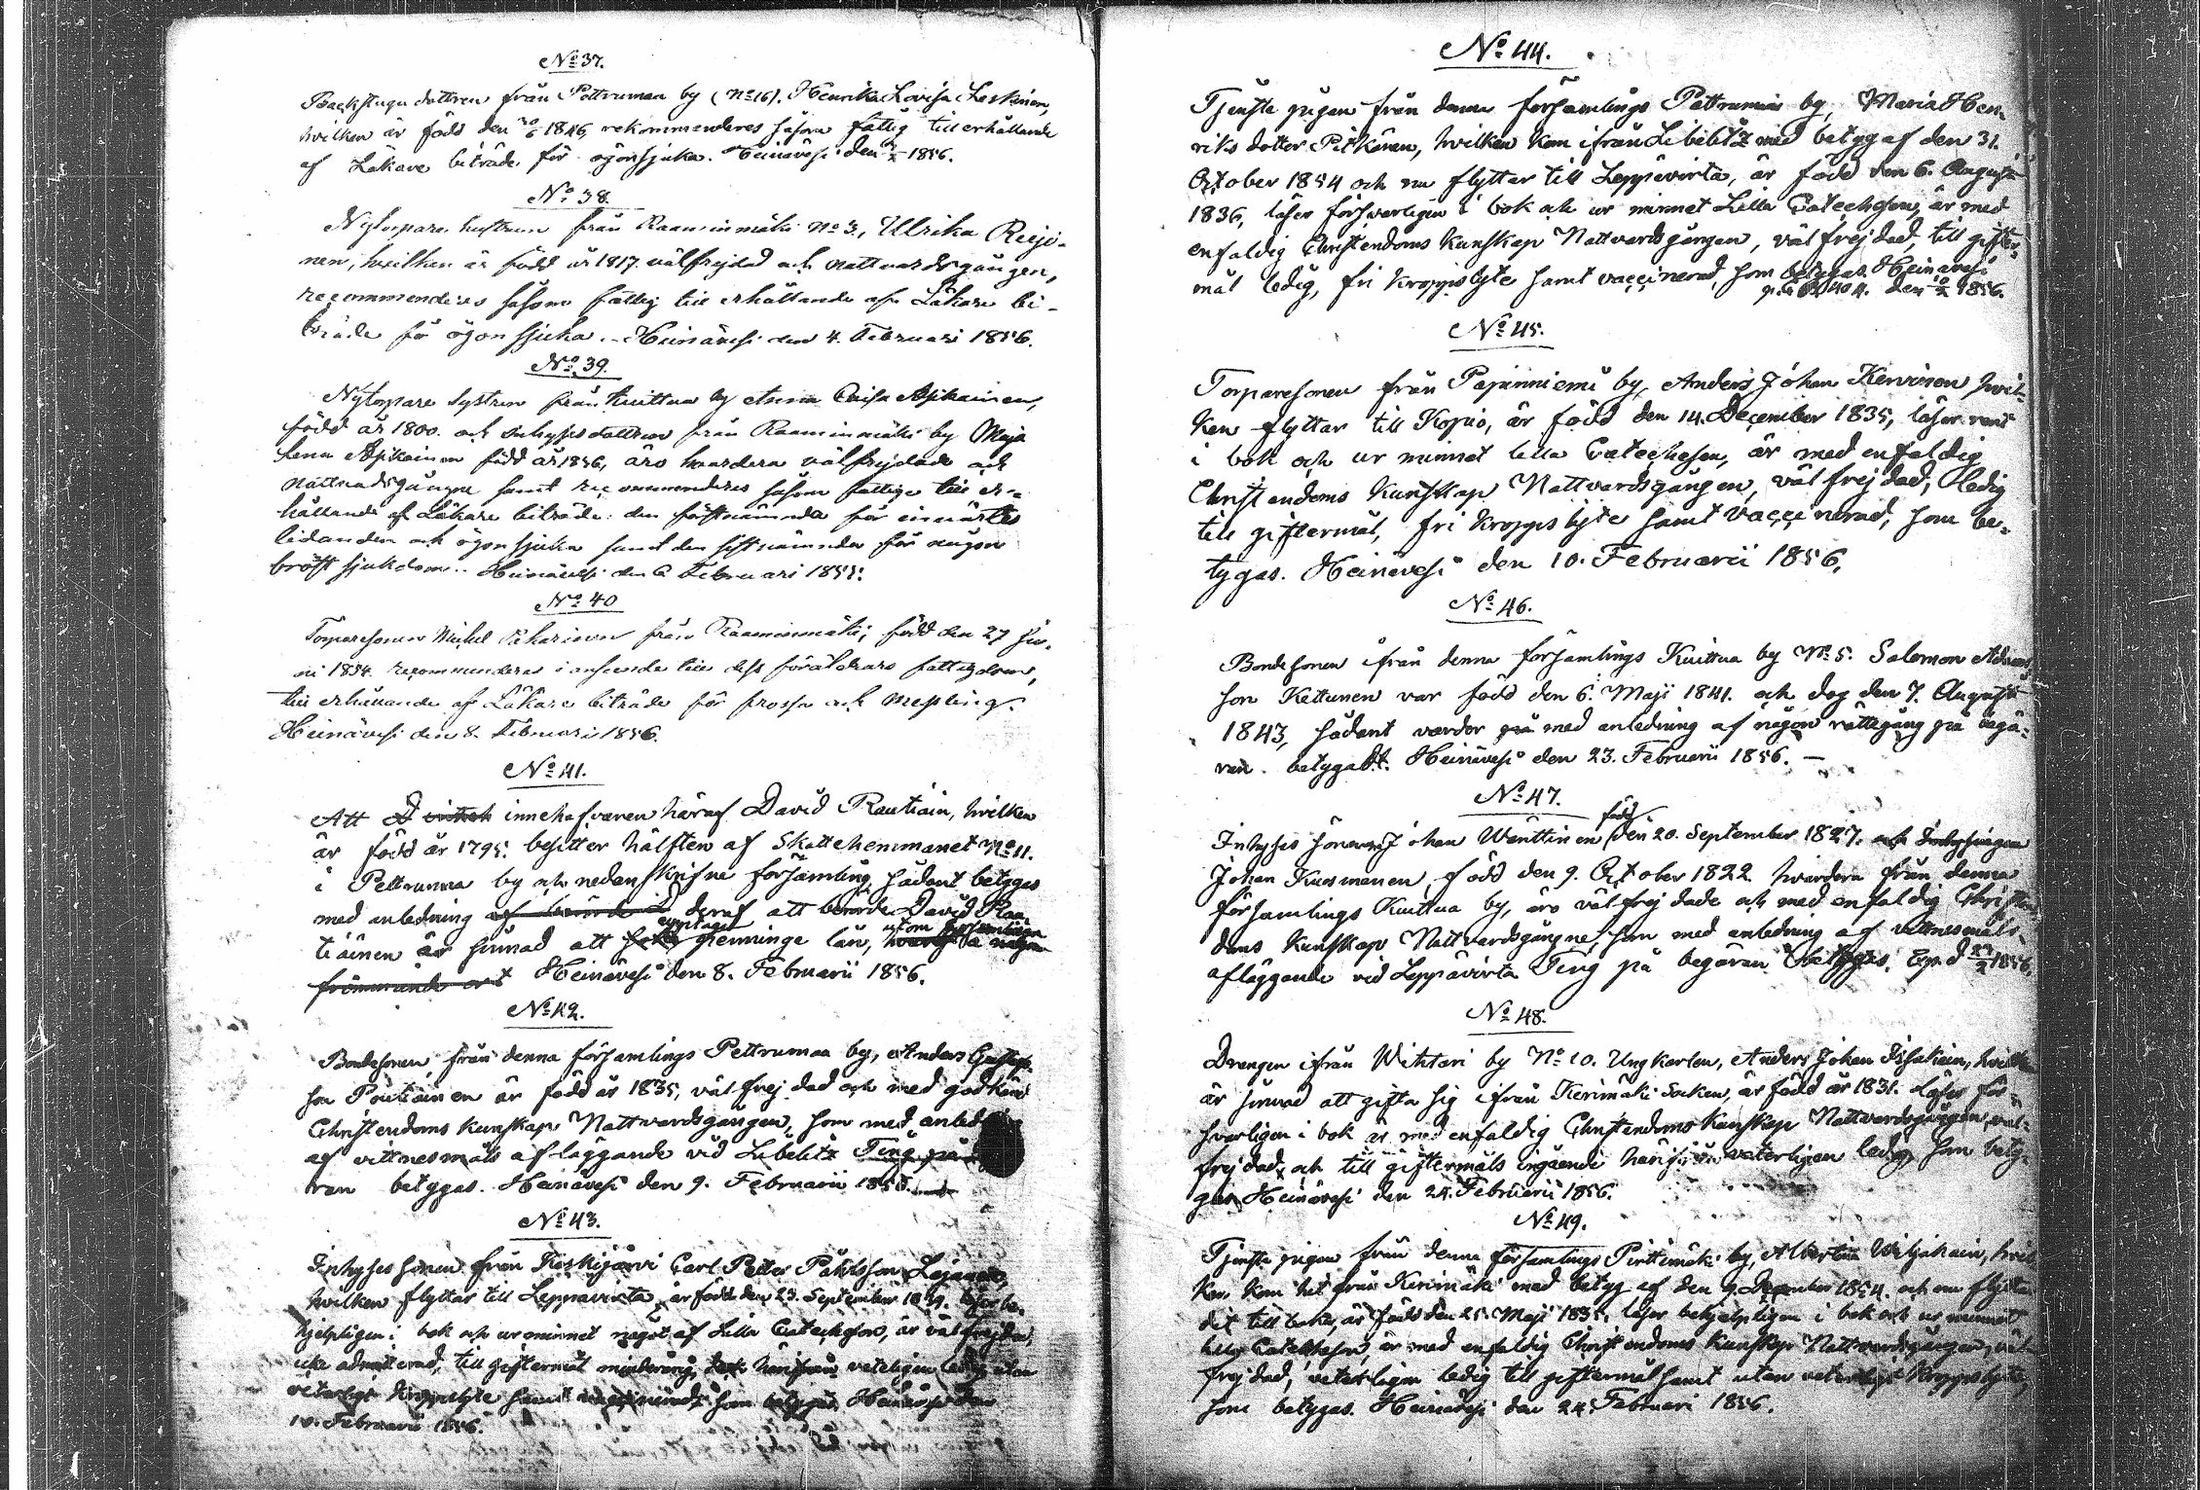 No 37.
Backstugu dottren från Pettrumaa by (No 16). Henrika Lovisa Leskinen,
hvilken är född den 20/6 1846, rekommenderes såsom fattig till erhållande
af Läkare biträde för ögonsjuka. Heinävesi den 1856.
No 38.
Nytorpare hustrun från Raaminmäki No 3, Ulrika Reijo-
nen, hvilken är född år 1817. välfrejdad och nattvardsgången,
recommenderes såsom fattig till erhållande af Läkare bi-
träde för ögonsjuka. Heinävesi den 4. Februari 1856.
No 39.
Nytorpare systren från Kuittua by Anna Caisa Asikainen,
född år 1800. och Inhyses dottren från Raaminmäki by Maja
Lena Asikainen född år 1836, äro hvardera välfrejdade och
nattvardsgångne samt recommenderes såsom fattige till er-
hållande af Läkare biträde: den förstnämnda för invärtes
lidanden och ögonsjuka samt den sistnämnda för någon
bröst sjukdom. Heinävesi den 6 Februari 1855.
No 40
Torparesonen Michel från Raaminmäki, född den 27 Ju-
ni 1854. recommenderes i anseende till dess föräldrars fattigdom,
till erhållande af Läkare biträde för frossa och messling.
Heinävesi den 8. Februari 1856.
No 41.
Att innehafvaren häraf David Rautiain, hvilken
är född år 1795. besitter hälften af Skattehemmanet No 11.
i Pettrumaa by och nedanskrifne församling, sådant betygas
med anledning deraf att berörde David Rau-
tiainen är sinnad att upptaga penninge lån, utom församlingen
Heinävesi den 8. Februarii 1856.
No 42.
Bondesonen, från denna församlings Pettrumaa by, Anders Gustafs-
son Poutiainen är född år 1835, väl frejdad och med godkänd
Christendoms kunskap Nattvardsgången, som med anled
af vittnesmåls afläggande vid Libelitz Ting på
ran betygas. Heinävesi den 9. Februarii 1856.
No 43.
Inhyses sonen från Keskijärvi Carl Petter Påhlsson
hvilken flyttar till Leppävirta, är född den 23. September 1839. läser be-
hjelpligen i bok och ur minnet något af Lilla Catechesen, är väl frejdad,
icke admitterad, till giftermål minderårig, härifrån veterligen ledig utan
veterligt kroppslyte samt som betygas. Heinävesi den
10. Februarii 1856.
No 44.
Tjenste pigan från denna församlings Pettrumaa by, Maria Hen-
riks dotter Pitkänen, hvilken kom ifrån Libelitz med betyg af den 31.
October 1854 och nu flyttar till Leppävirta, är född den 6. Augusti
1836, läser försvarligen i bok och ur minnet Lilla Catechesen, är med
enfaldig Christendoms kunskap Nattvardsgången, väl frejdad, till gifter-
mål ledig, fri kroppslyte samt vaccinerad, som betygas. Heinävesi
den 10/2 1856.
No 45.
Torparesonen från Papinniemi by, Anders Johan Kervinen hvil-
ken flyttar till Kopio, är född den 14. December 1835, läser rent
i bok och ur minnet lilla Catechesen, är med enfaldig
Christendoms kunskap Nattvardsgången, väl frejdad, ledig
till giftermål, fri kroppslyte samt vaccinerad, som be-
tygas. Heinävesi den 10. Februarii 1856.
No 46.
Bondesonen ifrån denna församlings Kuittua by No 5. Salomon Adams
son Kettunen var född den 6. Maji 1841. och dog den 7. Augusti
1843, sådant varder med anledning af någon rättegång på begä-
ran betygadt. Heinävesi den 23. Februarii 1856.
No 47.
Inhyses sonen Johan Wänttinen född den 20. September 1827. och
Johan Kuosmanen, född den 9. October 1822. hvardera från denna
församlings Kuittua by, äro väl frejdade och med enfaldig Christen-
doms kunskap Nattvardsgångne, som med anledning af vittnesmåls
afläggande vid Leppävirta Ting på begäran betygas, 1856.
No 48.
Drengen ifrån Wihtari by No 10. Ungkarlen, Anders Johan hvilken
är sinnad att gifta sig ifrån Kerimäki Socken, är född år 1831. Läser för-
svarligen i bok är med enfaldig Christendoms kunskap Nattvardsgången, väl-
frejdad, och till giftermåls ingående härifrån veterligen ledig, som bety-
gas Heinävesi den 24. Februarii 1856.
No 49.
Tjenste pigan från denna församlings Pirttimäki by, Albertina Wiljakain, hvil
ken kom hit från Kerimäki med betyg af den 9. December 1854. och nu flyttar
dit till baka, är född den 25. Maji 1835, läser behjelpligen i bok och ur minnet
lilla Catechesen, är med enfaldig Christendoms kunskap Nattvardsgången, väl
frejdad, veterligen ledig till giftermål samt utan veterligt kroppslyte,
som betygas. Heinävesi den 24. Februari 1856.